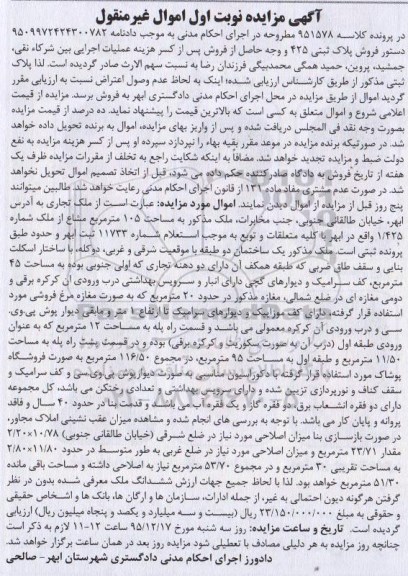 آگهی مزایده نوبت اول اموال غیرمنقول
در پرونده کلاسه ۹۵۱۵۷۸ مطروحه در اجرای احکام مدنی به موجب دادنامه ۹۵۰۹۹۷۲۴۲۴۳۰۰۷۸۲
دستور فروش پلاک ثبتی ۴۲۵ و وجه حاصل از فروش پس از کسر هزینه عملیات اجرایی بین شرکاء نفی،
جمشید، پروین، حمید همگی محمدبیگی فرزندان رضا به نسبت سهم الارث صادر گردیده است. لذا پلاک
ثبتی مذکور از طریق کارشناس ارزیابی شده؛ اینک به لحاظ عدم وصول اعتراض نسبت به ارزیابی مقرر
گردید اموال از طریق مزایده در محل اجرای احکام مدنی دادگستری ابهر به فروش برسد. مزایده از قیمت
اعلامی شروع و اموال متعلق به کسی است که بالاترین قیمت را پیشنهاد نماید. ده درصد از قیمت مزایده
بصورت وجه نقد فی المجلس دریافت شده و پس از واریز بهای مزایده، اموال به برنده تحویل داده خواهد
شد. در صورتیکه برنده مزایده در موعد مقرر بقیه بهاء را نپردازد سپرده او پس از کسر هزینه مزایده به نفع
دولت ضبط و مزایده تجدید خواهد شد. مضافاً به اینکه شکایت راجع به تخلف از مقررات مزایده ظرف یک
هفته از تاریخ فروش به دادگاه صادرکننده حکم داده می شود، قبل از اتخاذ تصمیم اموال تحویل نخواهد
شد. در صورت عدم مشتری مفاد ماده ۱۳۱ از قانون اجرای احکام مدنی رعایت خواهد شد. طالبین میتوانند
پنج روز قبل از مزایده از اموال دیدن نمایند. اموال مورد مزایده: عبارت است از ملک تجاری به آدرس
ابهر، خیابان طالقانی جنوبی، جنب مخابرات، ملک مذکور به مساحت ۱۰۵ مترمربع مشاع از ملک شماره
۱/۴۲۵ واقع در ابهر با کلیه متعلقات و توبع به موجب استعلام شماره ۱۱۷۳۳ ثبت ابهر و حدود طبق
پرونده ثبتی است. ملک مذکور یک ساختمان دو طبقه با موقعیت شرقی و غربی، دوکله، با ساختار اسکلت
بنایی و سقف طاق ضربی که طبقه همکف آن دارای دو دهنه تجاری که اولی جنوبی بوده به مساحت ۴۵
مترمربع، کف سرامیک و دیوارهای گچی دارای انبار و سرویس بهداشتی درب ورودی آن کرکره برقی و
دومی مغازه ای در ضلع شمالی، مغازه مذکور در حدود ۲۰ مترمربع که به صورت مغازه مرغ فروشی مورد
استفاده قرار گرفته، دارای کف موزائیک و دیوارهای سرامیک تا ارتفاع متر و مابقی دیوار پوش پی.وی.
سی و درب ورودی آن کرکره معمولی می باشد و قسمت راه پله به مساحت ۱۲ مترمربع که به عنوان
ورودی طبقه اول (درب آن به صورت سکوریت و کرکره برقی) بوده و در قسمت پشت راه پله به مساحت
۱۱/۵۰ مترمربع و طبقه اول به مساحت ۹۵ مترمربع، در مجموع ۱۱۶/۵۰ مترمربع به صورت فروشگاه
پوشاک مورد استفاده قرار گرفته با دکوراسیون مناسب به صورت دیوارپوش پی.وی.سی و کف سرامیک و
سقف کناف و نورپردازی تزیین شده و دارای سرویس بهداشتی و تعدادی رختکن می باشد، کل مجموعه
دارای دو فقره انشعاب برق، دو فقره گاز و یک فقره آب می باشد و قدمت بنا در حدود ۴۰ سال و فاقد
پروانه و پایان کار می باشد. با توجه به بررسی های انجام شده و مشاهده میزان عقب نشینی املاک مجاور،
در صورت بازسازی بنا میزان اصلاحی مورد نیاز در ضلع شرقی (خیابان طالقانی جنوبی) ۲/۲۰×۱۰/۷۸
مقدار ۲۳/۷۱ مترمربع و میزان اصلاحی مورد نیاز در ضلع غربی به طور متوسط در حدود ۲/۸۰×۱۱/۸۰
به مساحت تقریبی ۳۰ مترمربع و در مجموع ۵۳/۷۰ مترمربع نیاز به اصلاحی داشته و مساحت باقی مانده
۵۱/۳۰ مترمربع خواهد بود. لذا با لحاظ جمیع جهات ارزش ششدانگ ملک معرفی شده بدون در نظر
گرفتن هرگونه دیون احتمالی به غیر، از جمله ادارات، سازمان ها و ارگان ها، بانک ها و اشخاص حقیقی
و حقوقی به مبلغ ۲۳/۱۵۰/۰۰۰/۰۰۰ ریال (بیست و سه میلیارد و یکصد و پنجاه میلیون ریال) ارزیابی
گردیده است. تاریخ و ساعت مزایده: روز سه شنبه مورخ ۹۵/۱۲/۱۷ ساعت ۱۲-۱۱ لازم به ذکر است
چنانچه روز مزایده به هر دلیلی مصادف با تعطیلی شود مزایده روز بعد در همان ساعت برگزار خواهد شد.
دادورز اجرای احکام مدنی دادگستری شهرستان ابهر- صالحی